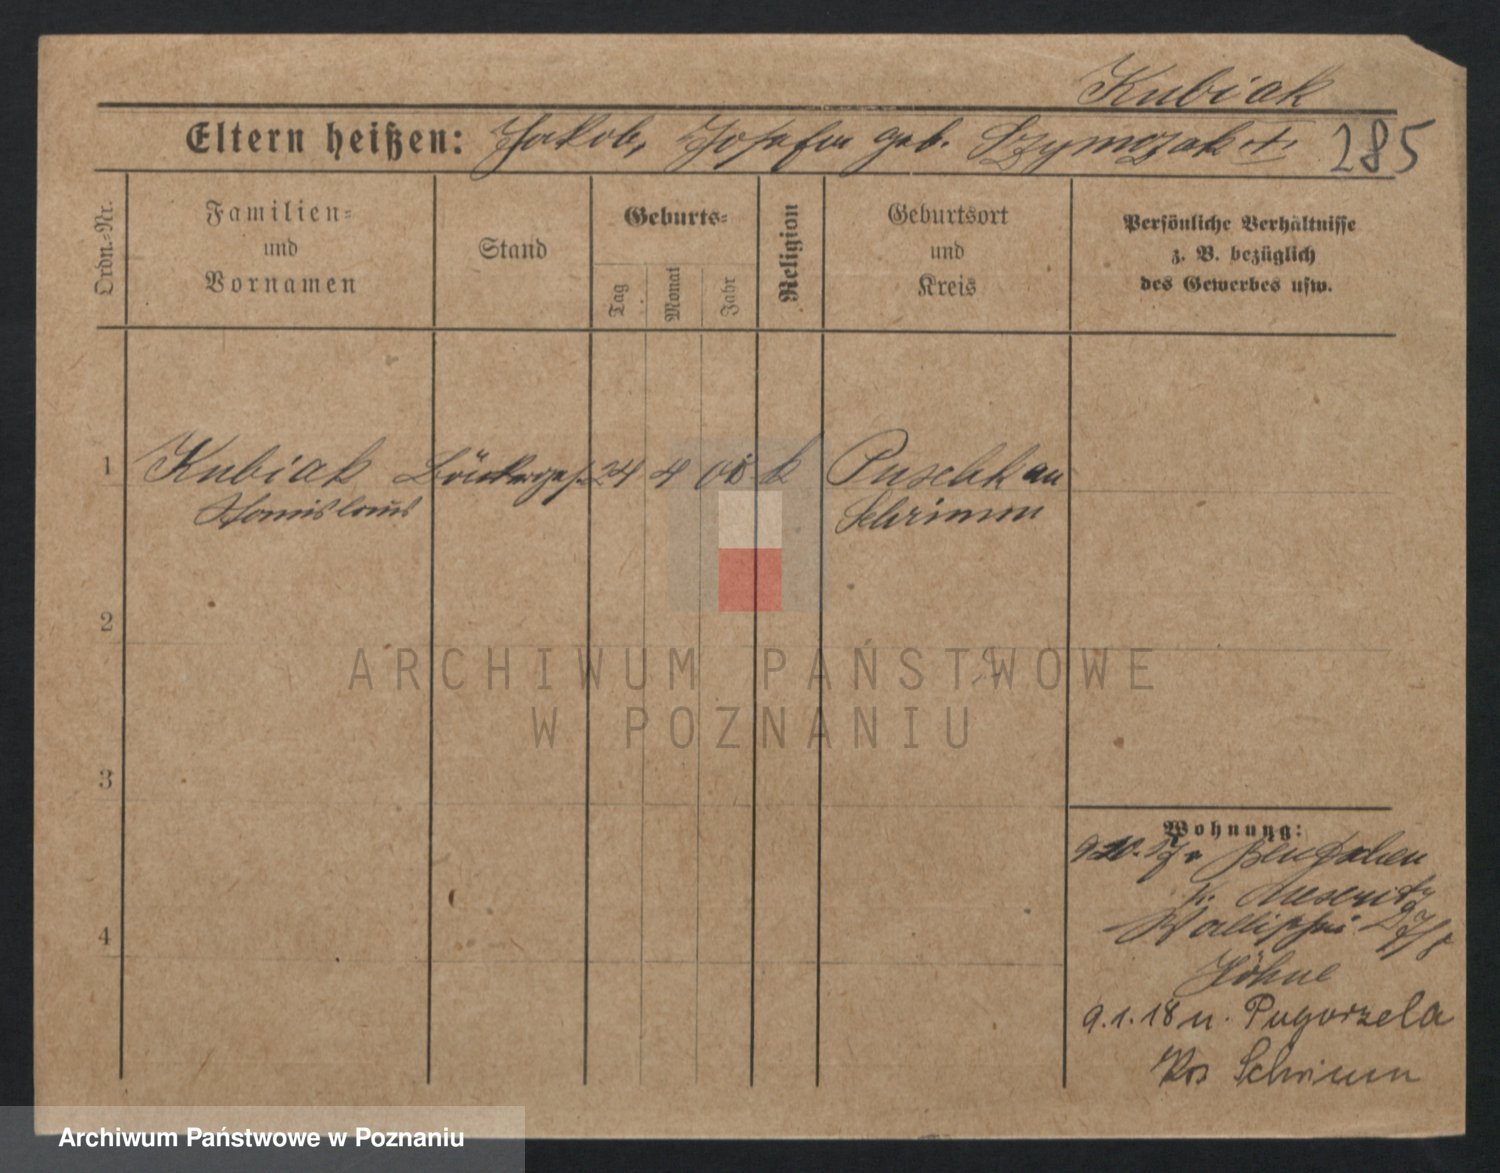 Kubiak
Eltern heißen: Jakob, Josefa geb. Szymczak + 285
Ordn.-Nr.
Familien- und Vornamen
Stand
Geburts-
Tag
Monat
Jahr
Religion
Geburtsort und Kreis
Persönliche Verhältnisse
z. B. bezüglich
des Gewerbes usw.
1 Kubiak Bäckerges. 24 4 01 k Puschkau
Stanislaus Schrimm
2
3
4
ARCHIWUM PAŃSTWOWE
W POZNANIU
Wohnung:
9.10.17 v. Bentschen
K. Meseritz
Wallischei
Höhne
9.1.18 n. Pogorzela
Krs Schrimm
Archiwum Państwowe w Poznaniu